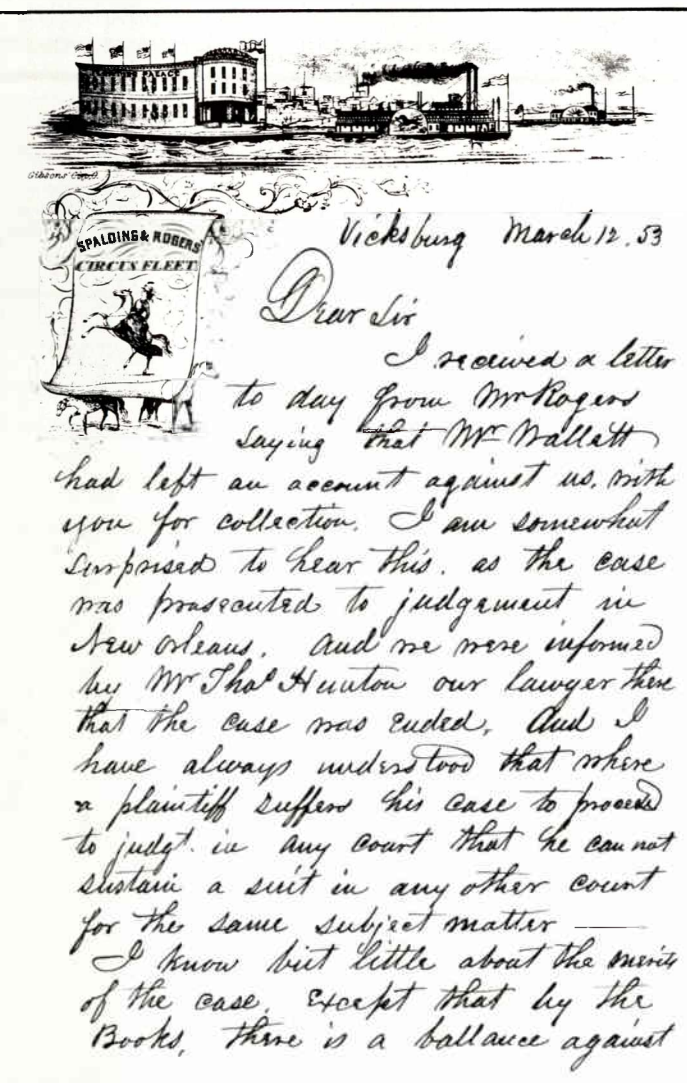 PALACE
Gibsons' Cin. O.
SPALDING & ROGERS'
CIRCUS FLEET.
Vicksburg March 12. 53
Dear Sir
I received a letter
to day from Mr Rogers
saying that Mr Wallett
had left an account against us, with
you for collection. I am somewhat
surprised to hear this. as the case
was prosecuted to judgement in
New Orleans. And we were informed
by Mr Thos Hunton our lawyer there
that the case was ended. And I
have always understood that where
a plaintiff suffers his case to proceed
to judgt. in any court that he can not
sustain a suit in any other court
for the same subject matter
I know but little about the merits
of the case. Except that by the
Books, there is a ballance against